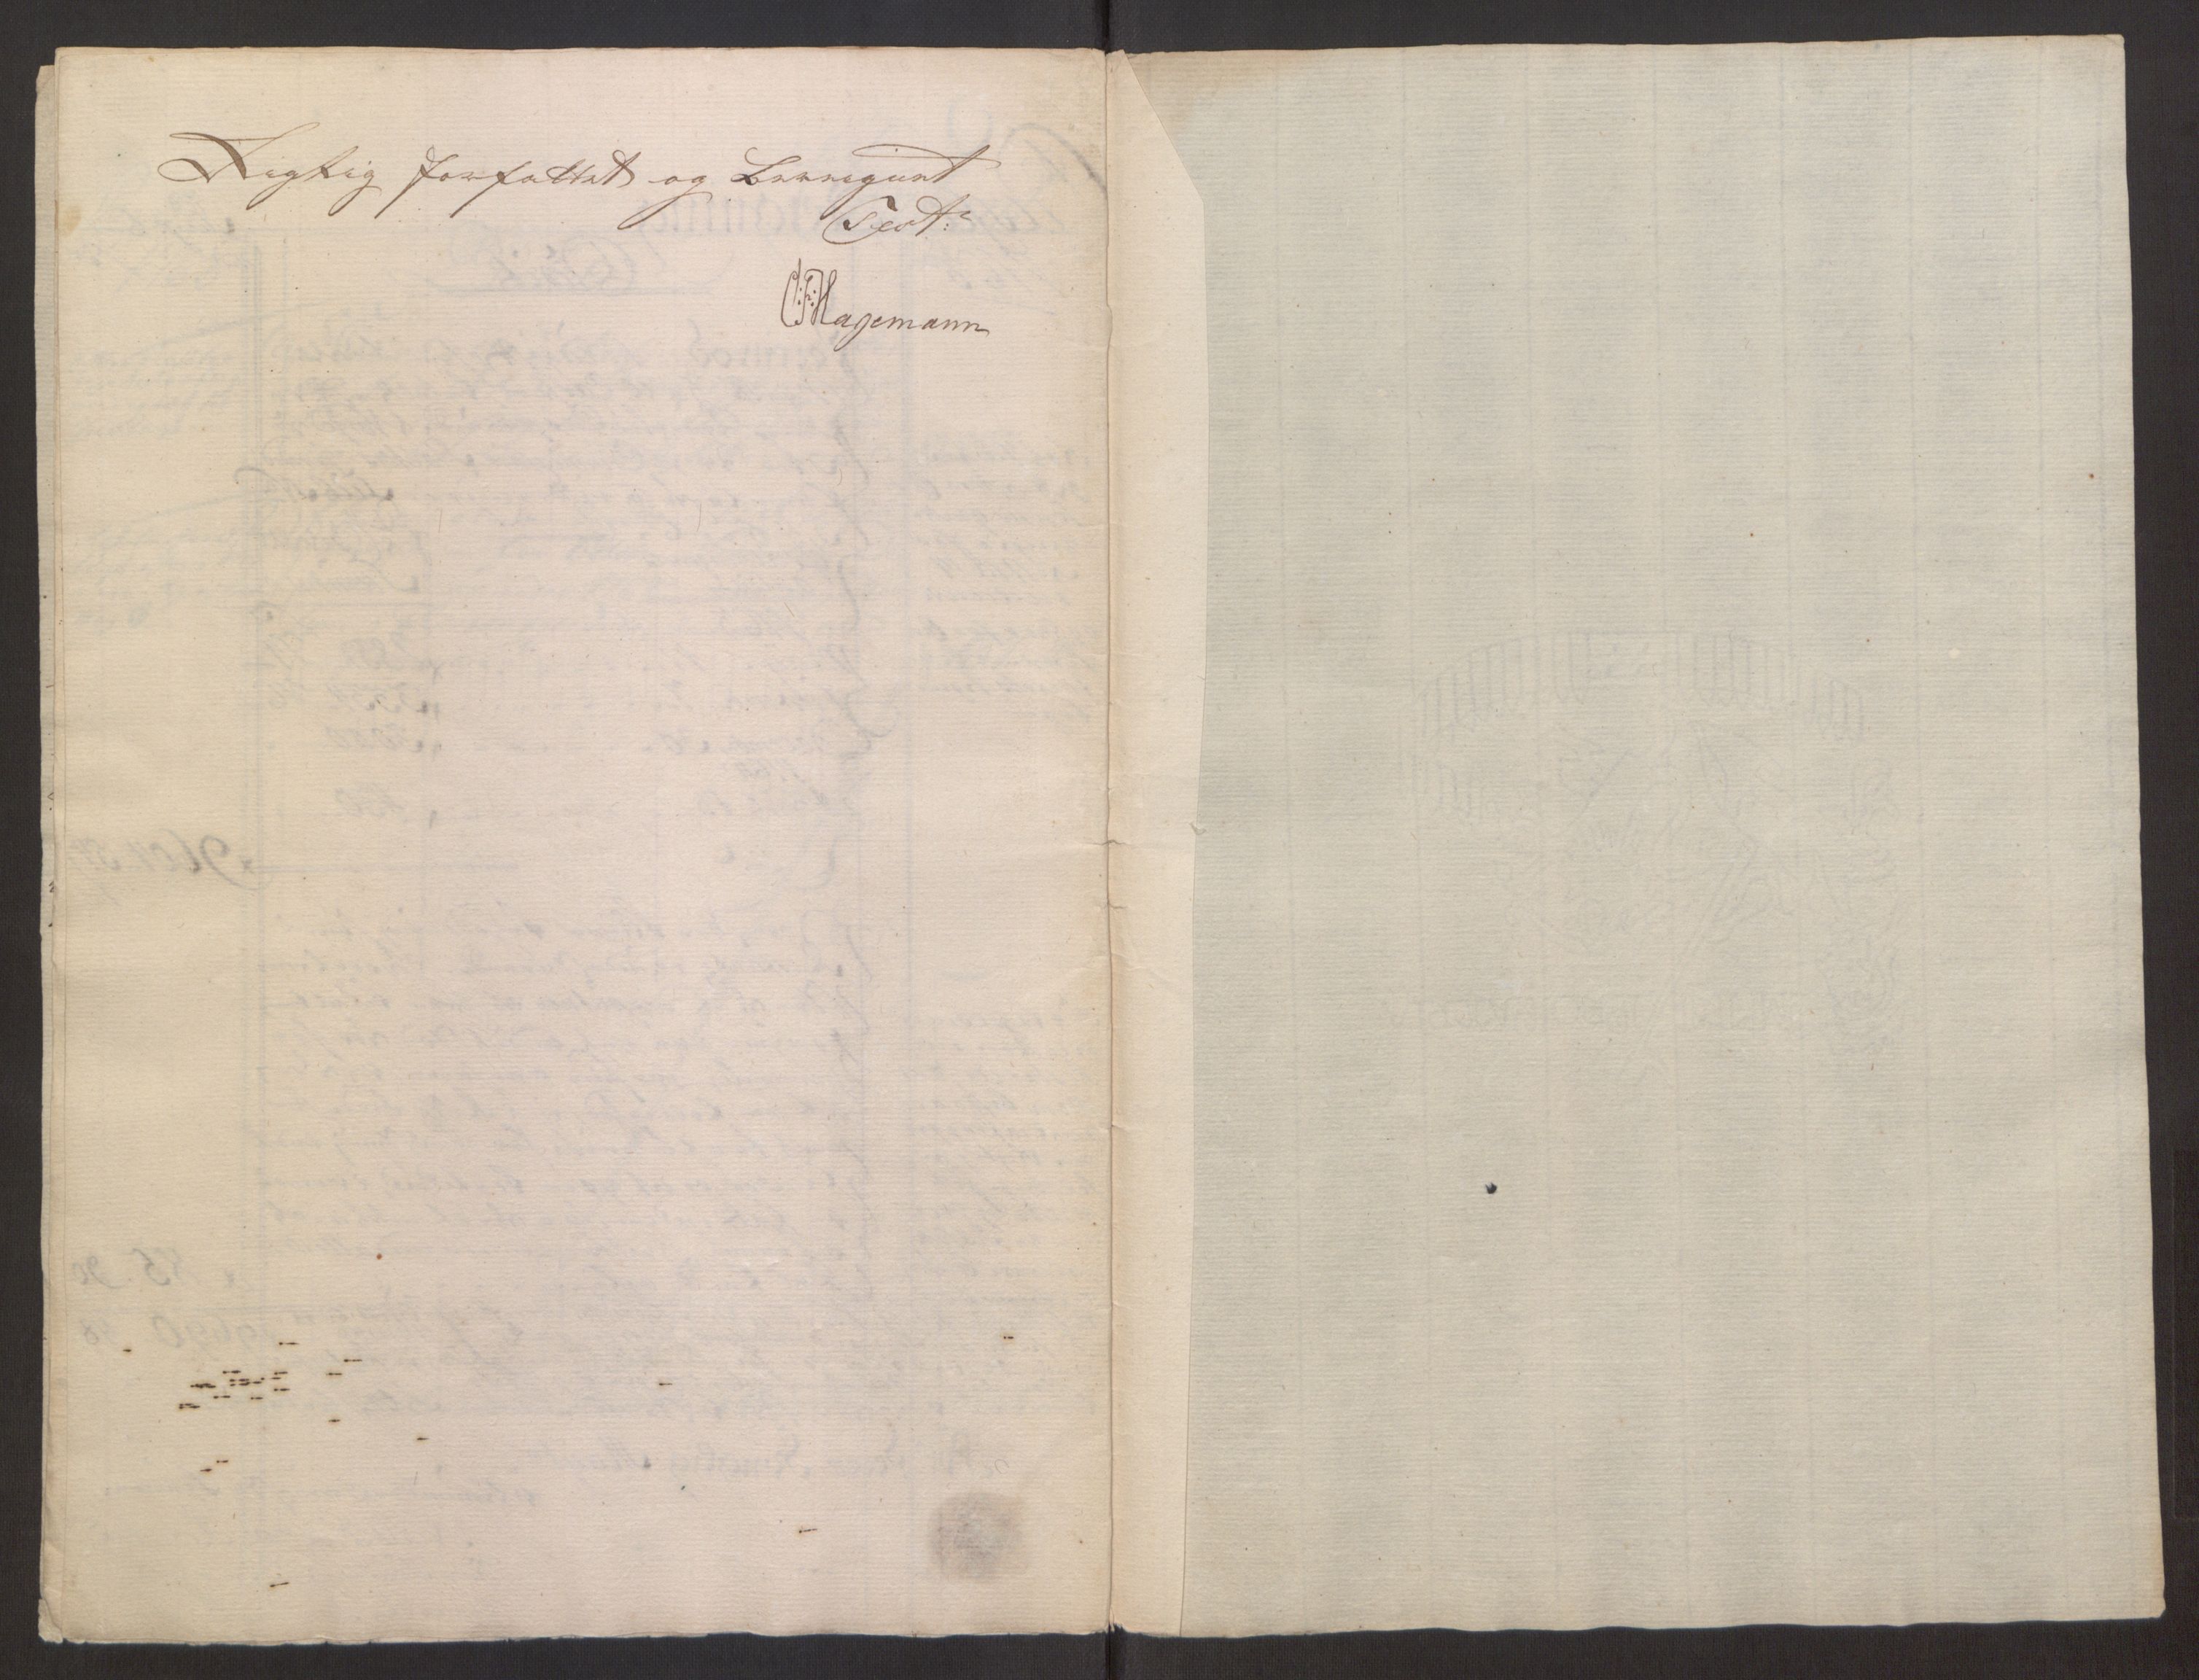 Rigtig forfattet og Beregnet
Test:
C:F:Hagemann